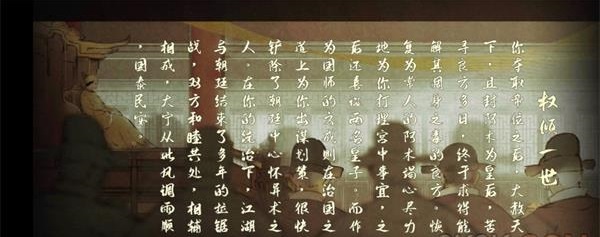 权倾一世
你夺取帝位之后，大赦天
下，且封阿木为皇后，苦
寻良方多日，终于求得能
解其周身之毒的良方，恢
复为常人的阿木竭心尽力
地为你打理宫中事宜，之
后还喜诞两名皇子。而作
为国师的成则在治国之
道上为你出谋划策，很快
铲除了朝廷中心怀异术之
人。在你的统治下，江湖
与朝廷结束了多年的拉锯
战，双方和睦共处，相辅
相成，大宁从此风调雨顺
，国泰民安。